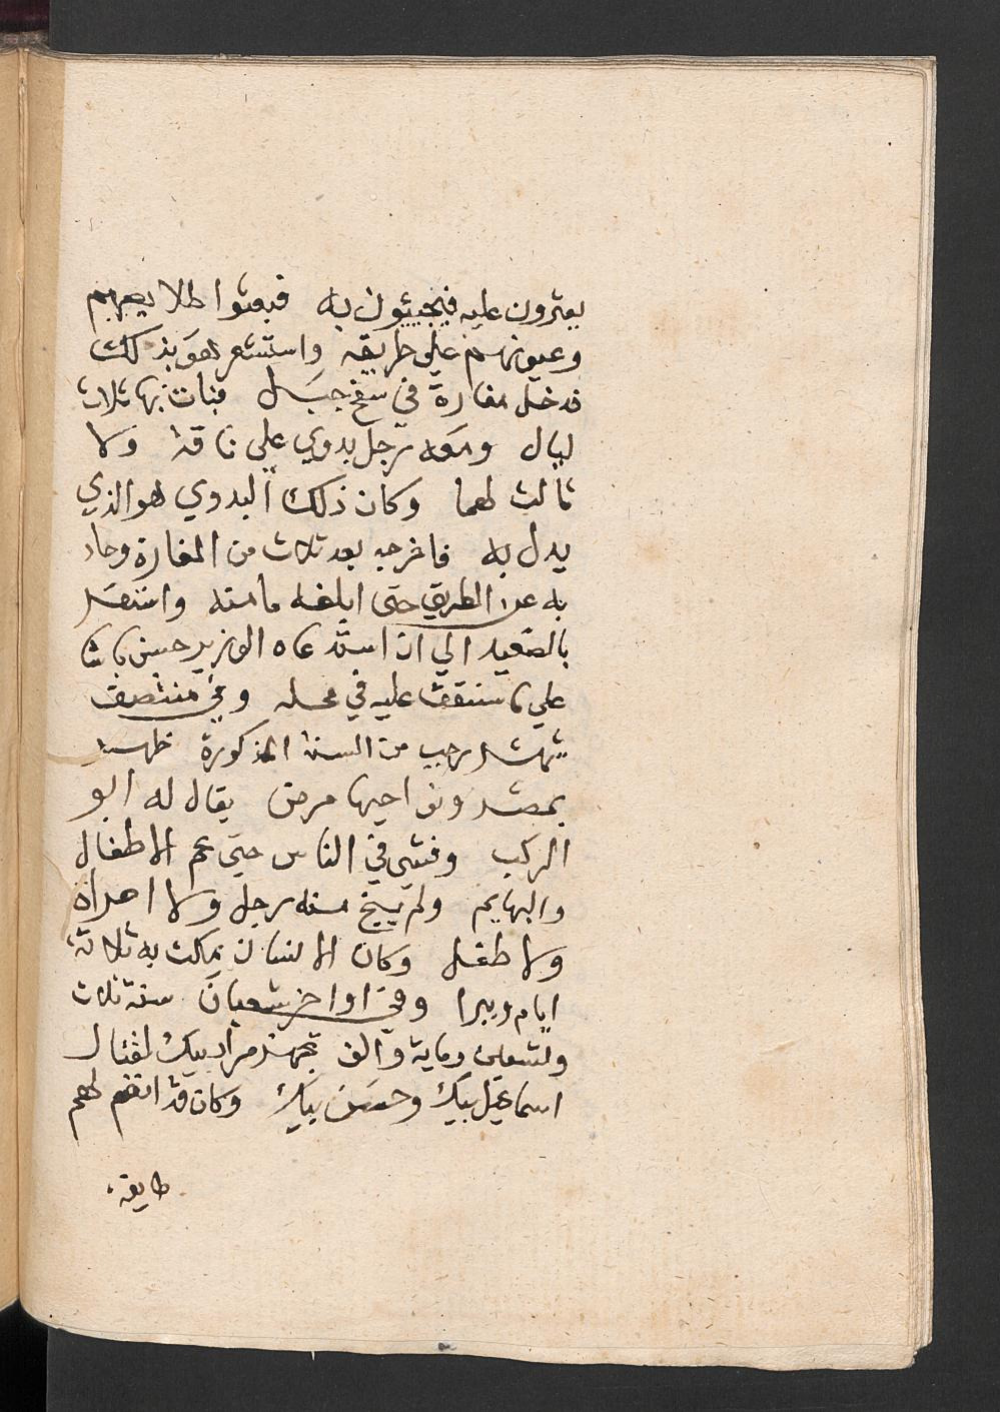 يعثرون عليه فيجيئون به فبعثوا طلايعهم
وعيونهم علي طريقه واستشعر هو بذلك
فدخل مغارة في سفح جبل فبات بها ثلاث
ليال ومعه رجل بدوي علي ناقة ولا
ثالث لهما وكان ذلك البدوي هو الذي
يدل به فاخرجه بعد ثلاث من المغارة وحاد
به عن الطريق حتى ابلغه مامنه واستقر
بالصعيد الي ان استدعاه الوزير حسن باشا
علي ما ستقف عليه في محله وفي منتصف
شهر رجب من السنة المذكورة ظهر
بمصر ونواحيها مرض يقال له ابو
الركب وفشي في الناس حتى عم الاطفال
والبهايم ولم ينج منه رجل ولا امراة
ولا طفل وكان الانسان يمكث به ثلاثة
ايام ويبرا وفي اواخر شعبان سنة ثلاث
وتسعين وماية والف تجهز مراد بيك لقتال
اسماعيل بيك وحسن بيك وكان قد انضم لهم
طايفة